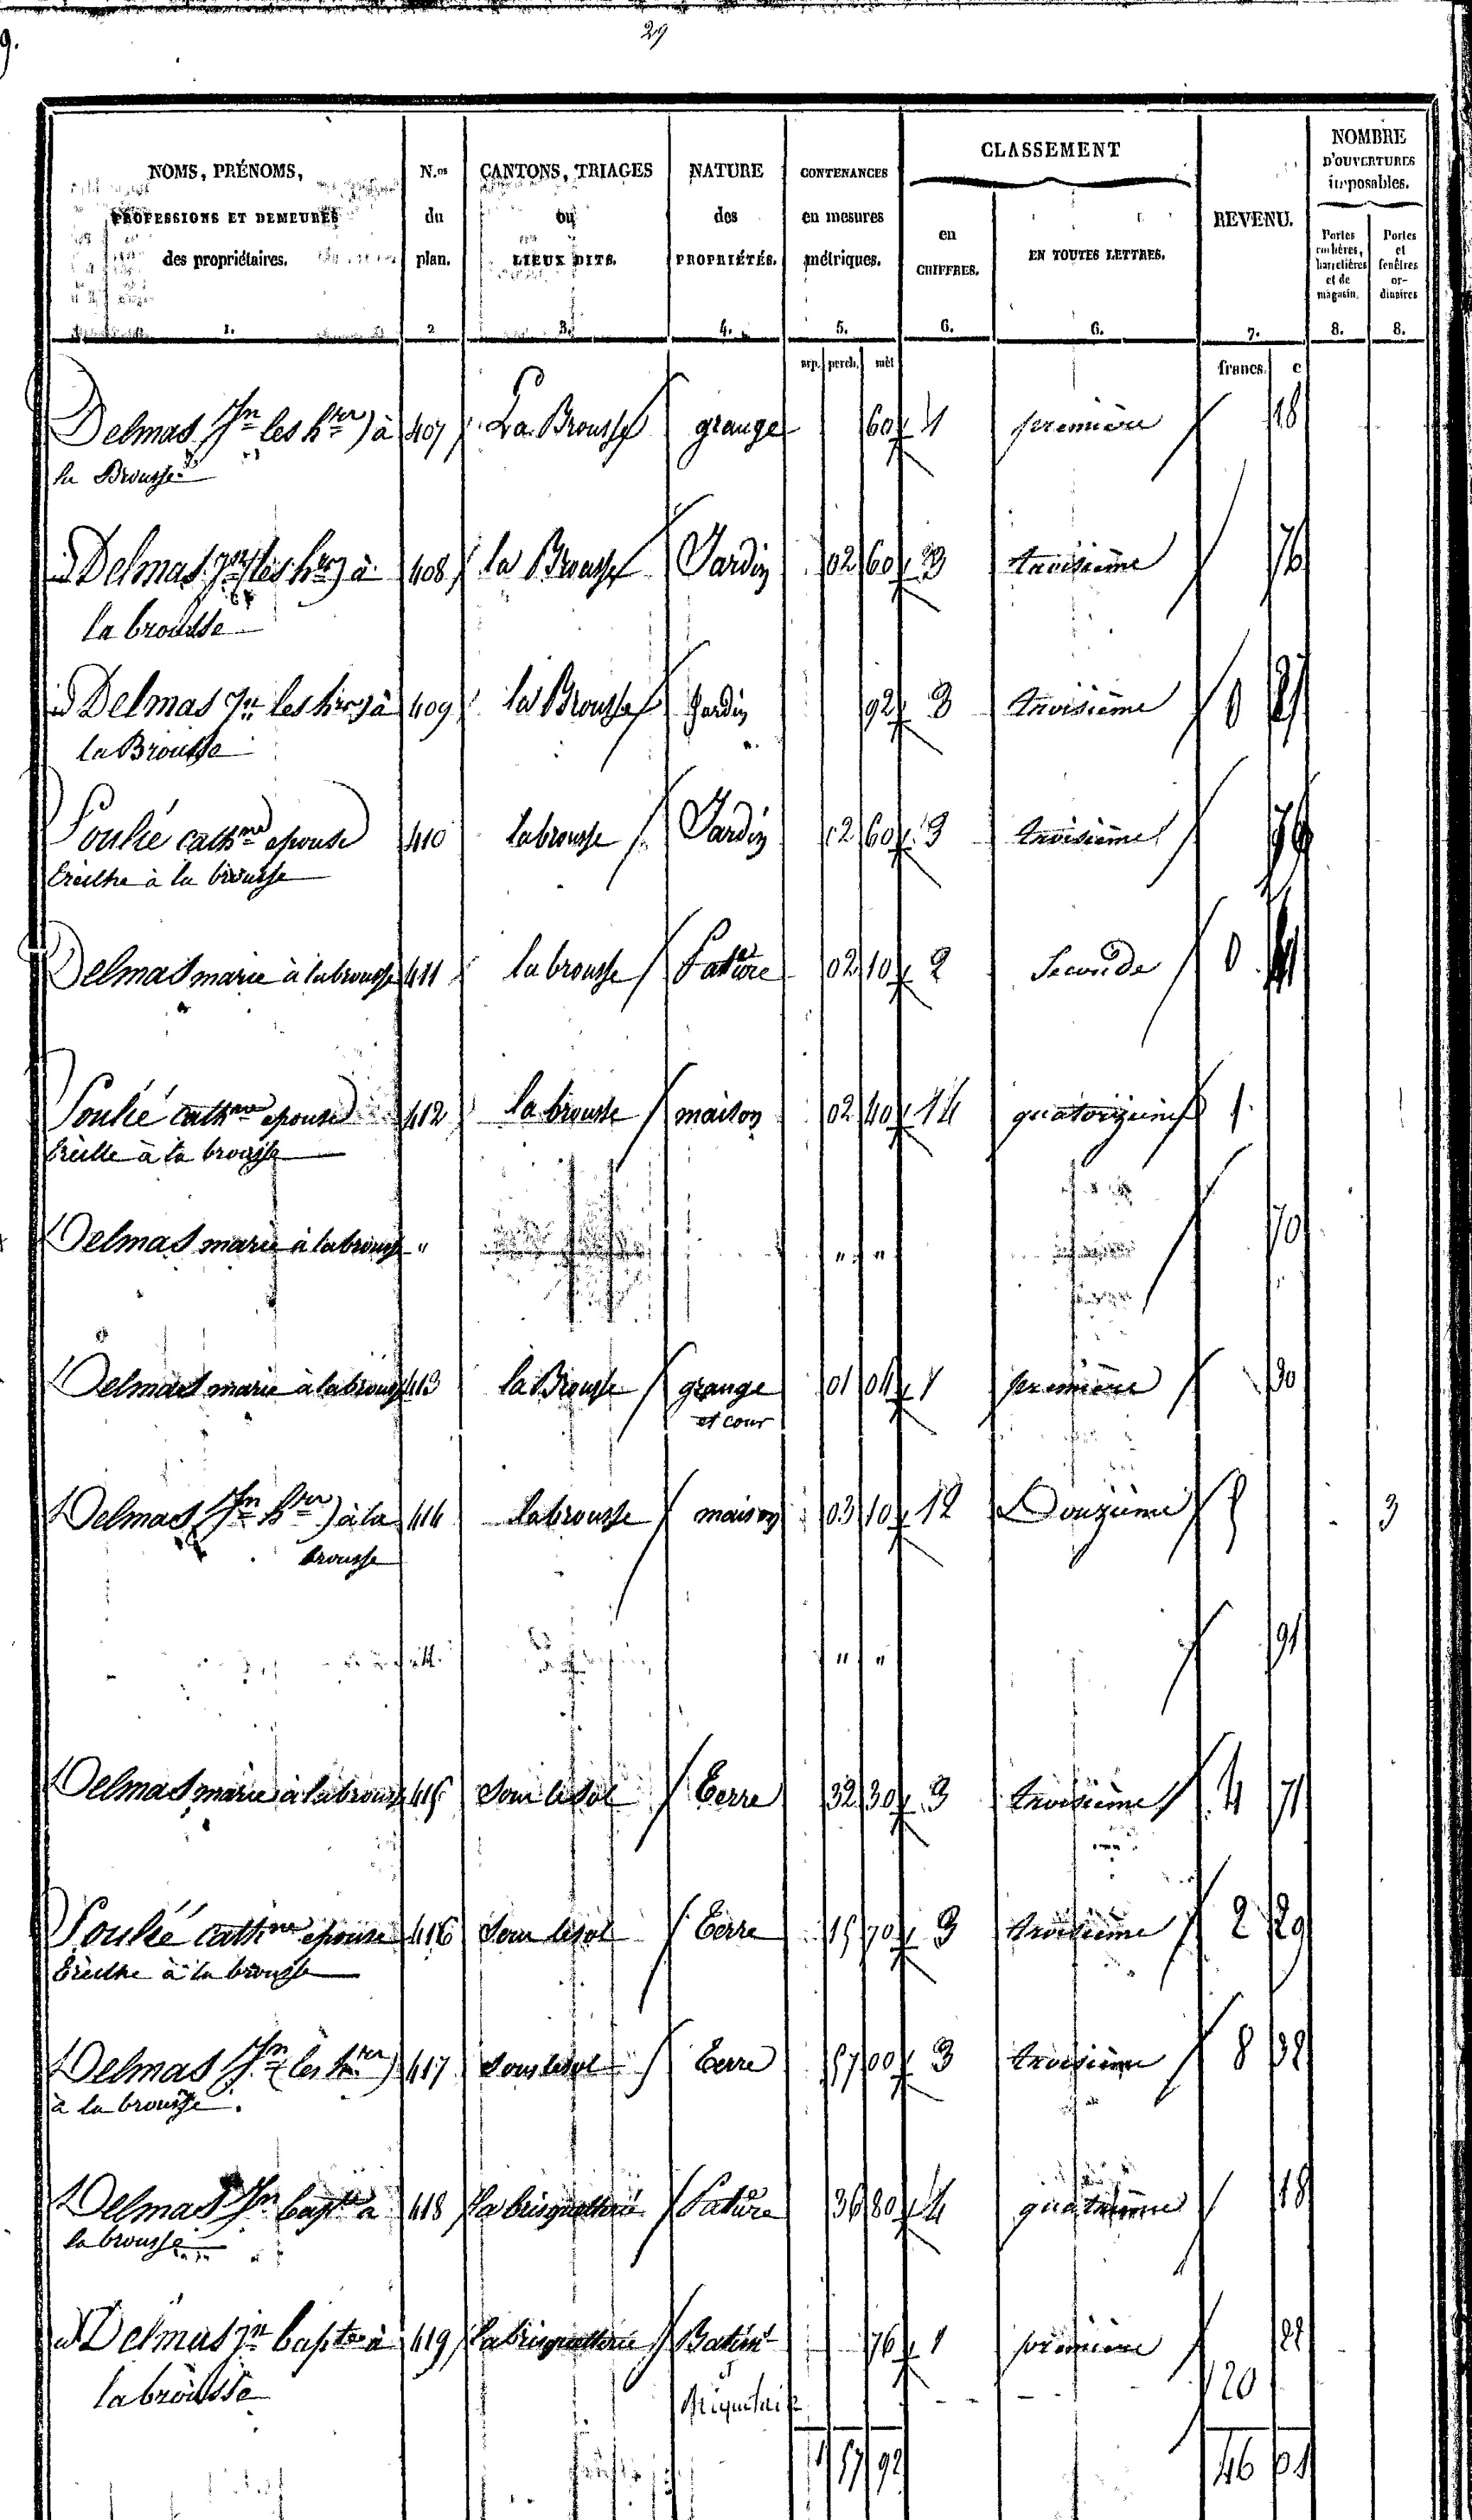 29
9.
NOMS, PRÉNOMS, PROFESSIONS ET DEMEURES des propriétaires. 1.
N.os du plan. 2
CANTONS, TRIAGES ou LIEUX DITS. 3.
NATURE des PROPRIÉTÉS. 4.
CONTENANCES en mesures métriques. 5.
CLASSEMENT
en CHIFFRES. 6.
EN TOUTES LETTRES. 6.
REVENU. 7.
NOMBRE D'OUVERTURES imposables.
Portes cochères, charretières et de magasin. 8.
Portes et fenêtres ordinaires 8.
arp. perch. mèt francs. c
Delmas (Jn les hers) à 407 La Brousse grange 60 1 première 18
la Brousse
id Delmas Jn (les hers) à 408 la Brousse Jardin 02 60 3 troisième 76
la brousse
id Delmas Jn les hers à 409 la Brousse Jardin 92 3 troisième 0 27
la Brousse
Soulié cathne epouse 410 labrousse Jardin 02 60 3 troisième 76
Treilhe à la brousse
Delmas marie à labrousse 411 la brousse Pature 02 10 2 Seconde 0
Soulié cathne epouse 412 la brousse maison 02 40 14 quatorzieme 1
Treille à la brousse
70
Delmas marie à labrousse " " "
Delmas marie à labrousse 413 la Brousse grange 01 04 1 première 30
et cour
Delmas (Jn hers) à la 414 labrousse maison 03 10 12 Douzieme 3
brousse
" " 91
Delmas marie à labrousse 415 Sous le sol Terre 32 30 3 troisième 4 71
Soulié cathne epouse 416 Sous lesol Terre 15 70 3 troisième 2 29
Treilhe à la brousse
Delmas Jn (les hers) 417 Sous lesol Terre 57 00 3 troisième 8 32
à la brousse.
Delmas Jn bapte à 418 la brisquetterie Pature 36 80 4 quatrième 18
la brousse
id Delmas jn bapte à 419 la brisquetterie Batimt 76 1 première 22
labrousse et 20
Briqueterie
1 57 92 46 01